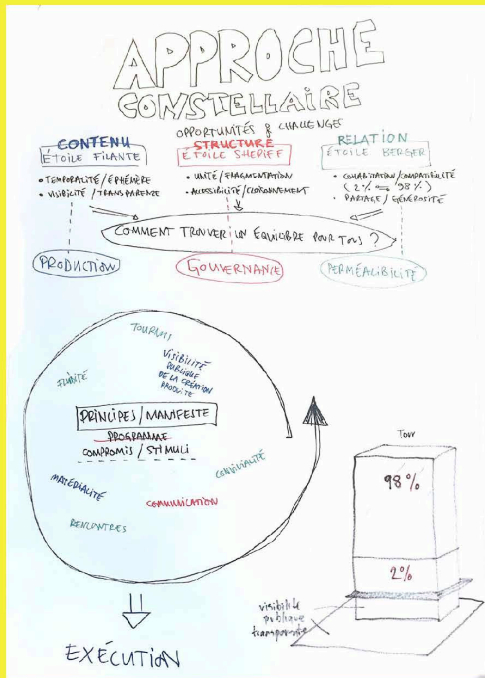 APPROCHE
CONSTELLAIRE
OPPORTUNITÉS & CHALLENGES
CONTENU
ÉTOILE FILANTE
• TEMPORALITÉ/ÉPHÉMÈRE
• VISIBILITÉ/TRANSPARENCE
STRUCTURE
ÉTOILE SHÉRIFF
• UNITÉ/FRAGMENTATION
• ACCESSIBILITÉ/CLOISONNEMENT
RELATION
ÉTOILE BERGER
• COHABITATION/COMPATIBILITÉ
(2% ⇆ 98%)
• PARTAGE/GÉNÉROSITÉ
COMMENT TROUVER UN ÉQUILIBRE POUR TOUS ?
PRODUCTION
GOUVERNANCE
PERMÉALIBILITÉ
VISIBILITÉ
PUBLIQUE
DE LA CRÉATION
PRODUITE
FLUIDITÉ
PRINCIPES/MANIFESTE
PROGRAMME
COMPROMIS/STIMULI
CONVIVIALITÉ
MATÉRIALITÉ
COMMUNICATION
RENCONTRES
EXÉCUTION
Tour
98%
2%
visibilité
publique
transparente